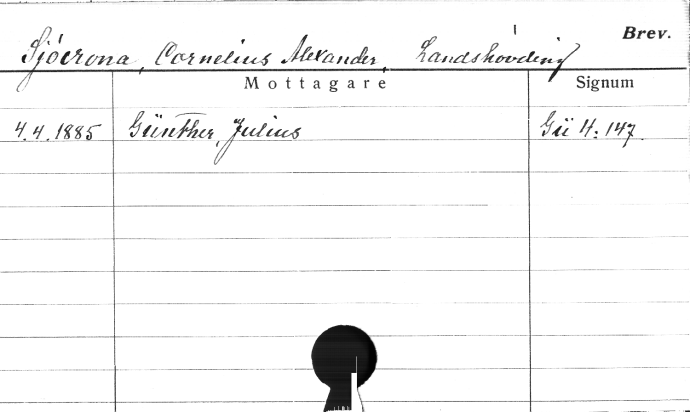 Brev.
Sjöcrona, Cornelius Alexander, Landshövding
Mottagare Signum
4.4.1885 Günther, Julius Gü 4:147